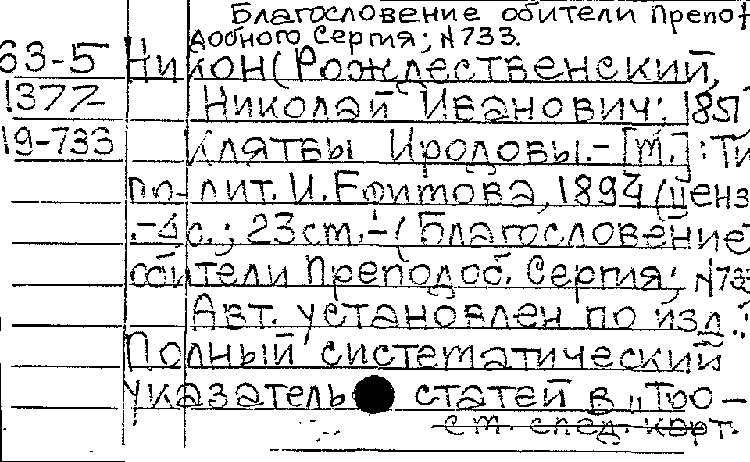 Благословение обители Препо-
добного Сергия; №733.
63-5 Никон (Рождественский,
1377 Николай Иванович; 1851
19-733 Клятвы Иродовы.- [М.]: Ти
по-лит. И. Ефимова, 1894 (ценз
.-4с.; 23ст.-(Благословение
обители Преподоб. Сергия; №733
Авт. установлен по изд.:
Полный систематический
указатель статей в „Тро-
см. спец. карт.